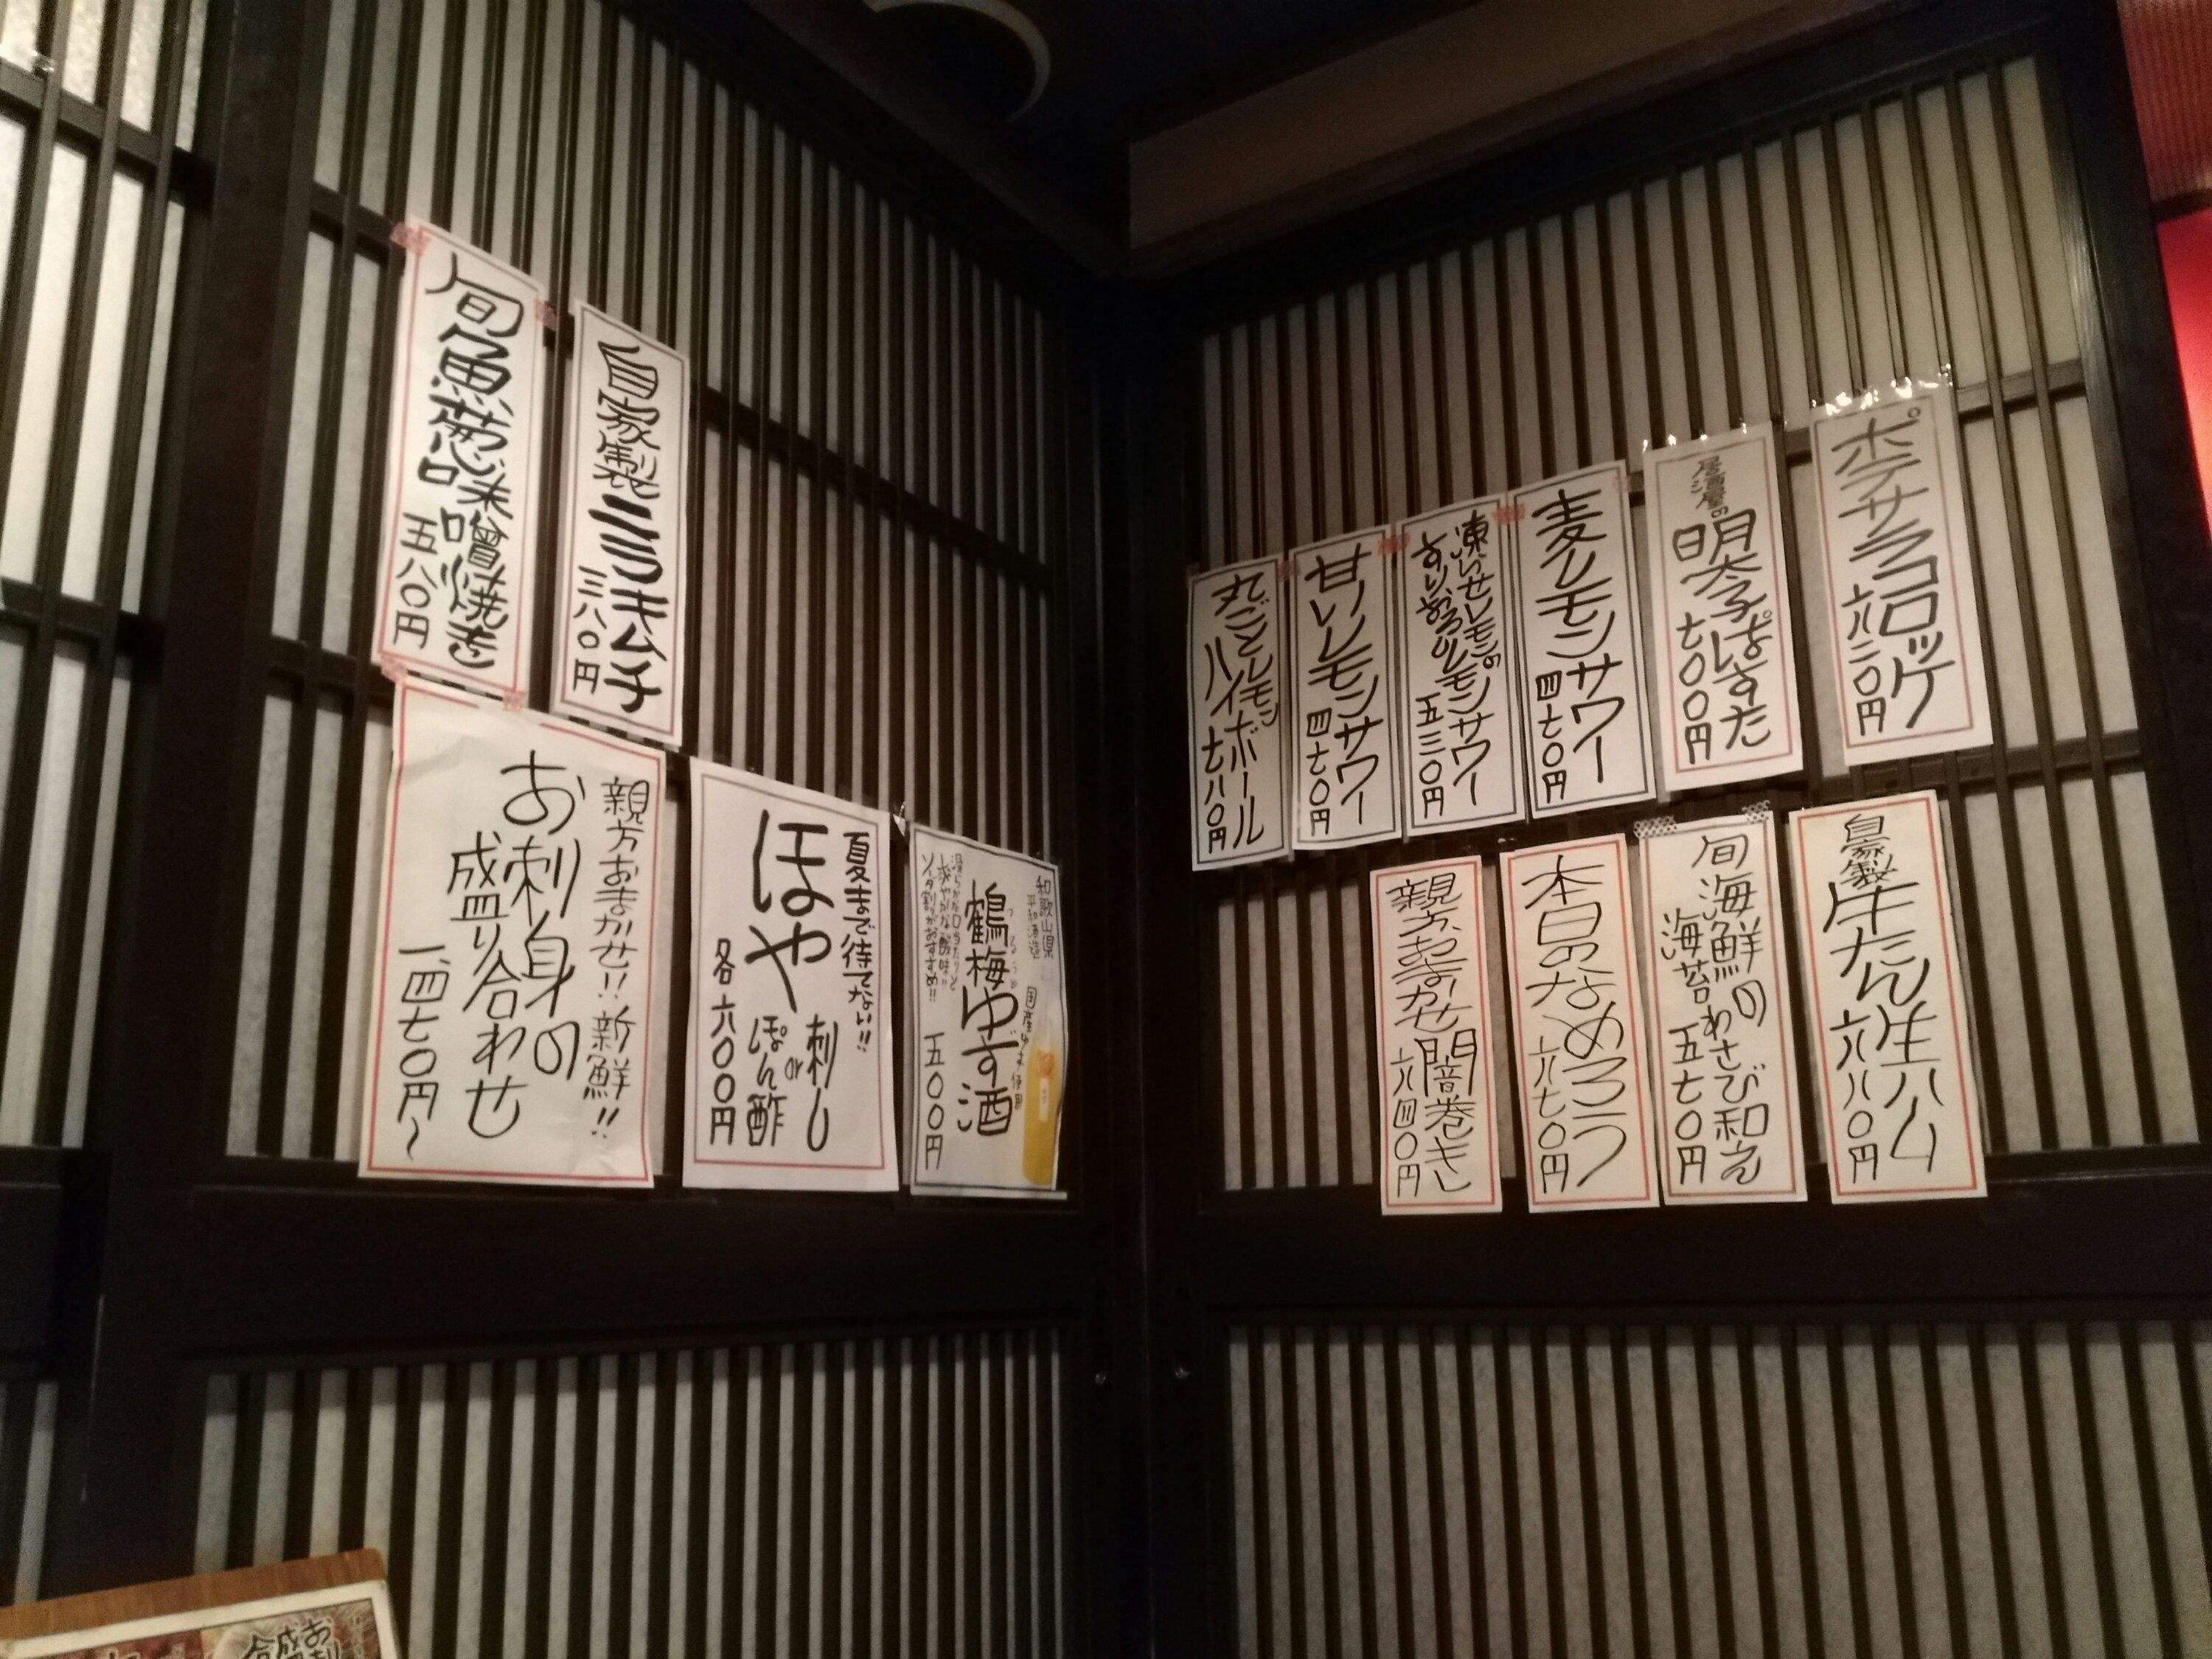 旬魚葱味噌焼き
五八〇円
自家製ニラキムチ
三八〇円
親方おまかせ!!新鮮!!
お刺身の
盛り合わせ
一、四七〇円〜
夏まで待てない!!
ほや
刺し
or
ぽん酢
各六〇〇円
和歌山県
平和酒造
国産ゆず使用
つるうめ
鶴梅ゆず酒
滑らかな口当たりと
爽やかな酸味!!
ソーダ割りがおすすめ!!
五〇〇円
丸ごとレモン
ハイボール
七八〇円
甘いレモンサワー
四七〇円
凍らせレモンの
すりおろしレモンサワー
五三〇円
麦レモンサワー
四七〇円
居酒屋の
明太子ぱすた
七〇〇円
ポテサラコロッケ
六二〇円
親方おまかせ闇巻きし
六四〇円
本日のなめろう
六七〇円
旬海鮮の
海苔わさび和え
五七〇円
自家製
牛たん生ハム
六八〇円
お刺
盛
合